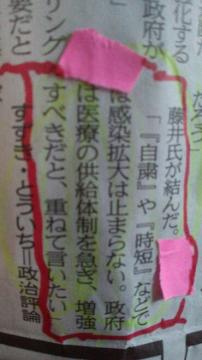 化する
政府が
リング
姿だと
藤井氏が結んだ。
「『自粛』や『時短』などで
は感染拡大は止まらない。政府
は医療の供給体制を急ぎ、増強
すべきだと、重ねて言いたい
すずき・とういち=政治評論